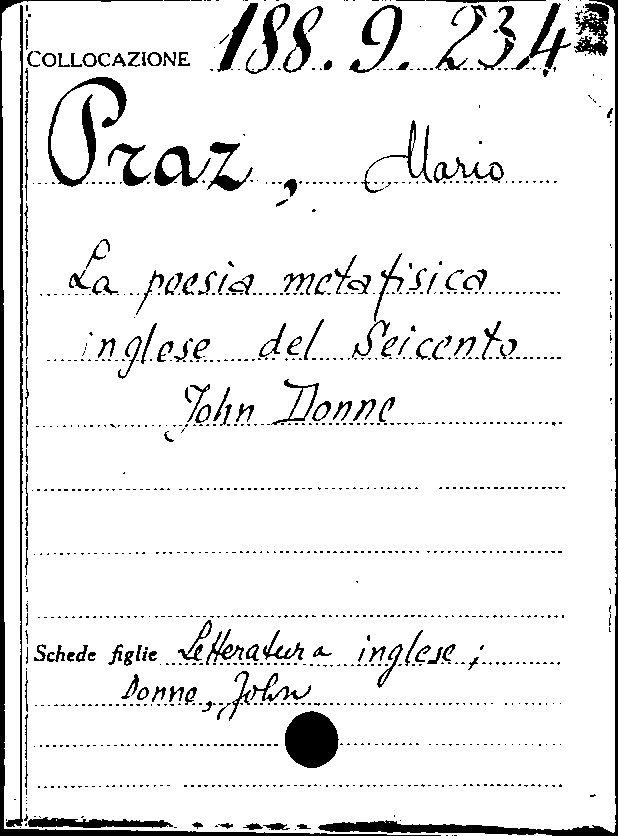 COLLOCAZIONE 188.9.234
Praz, Mario
La poesia metafisica
inglese del Seicento
John Donne
Schede figlie Letteratura inglese;
Donne, John